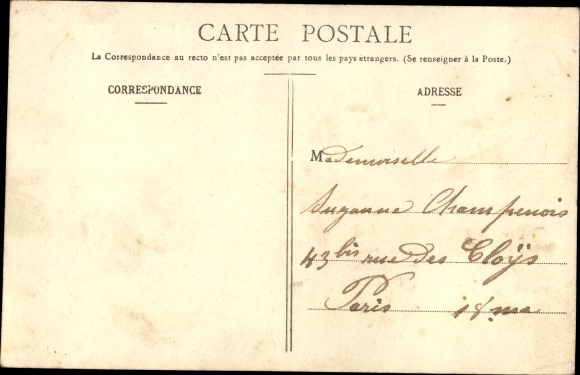 CARTE POSTALE
La Correspondance au recto n'est pas acceptée par tous les pays étrangers. (Se renseigner à la Poste.)
CORRESPONDANCE
ADRESSE
Mademoiselle
Suzanne Champenois
43 bis rue des Cloÿs
Paris 18 me